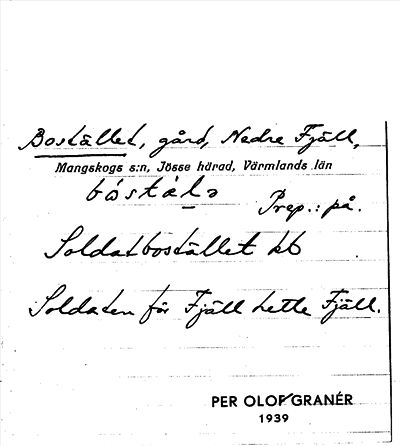 Bostället, gård, Nedre Fjäll,
Mangskogs s:n, Jösse härad, Värmlands län
bóstälə
Prep.: på.
Soldatbostället
Soldaten för Fjäll hette Fjäll.
PER OLOF GRANÉR
1939